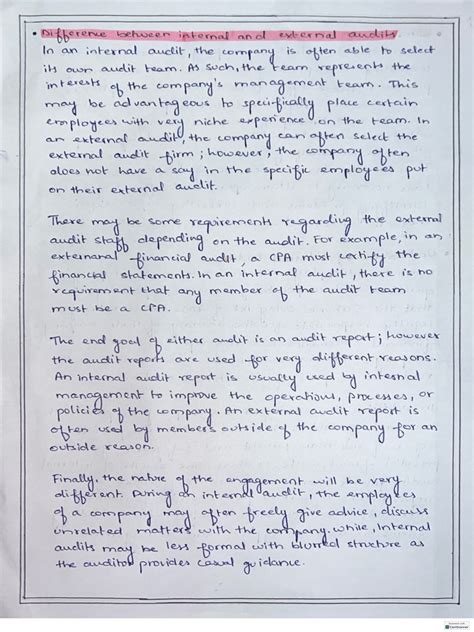 • Difference between internal and external audits
In an internal audit, the company is often able to select
its own audit team. As such, the team represents the
interests of the company's management team. This
may be advantageous to specifically place certain
employees with very niche experience on the team. In
an external audit, the company can often select the
external audit firm; however, the company often
does not have a say in the specific employees put
on their external audit.
There may be some requirements regarding the external
audit staff depending on the audit. For example, in an
externanal financial audit, a CPA must certify the
financial statements. In an internal audit, there is no
requirement that any member of the audit team
must be a CPA.
The end goal of either audit is an audit report; however
the audit reports are used for very different reasons.
An internal audit report is usually used by internal
management to improve the operations, processes, or
policies of the company. An external audit report is
often used by members outside of the company for an
outside reason.
Finally, the nature of the engagement will be very
different. During an internal audit, the employees
of a company may often freely give advice, discuss
unrelated matters with the company. While, Internal
audits may be less formal with blurred structure as
the auditor provides casual guidance.
CamScanner